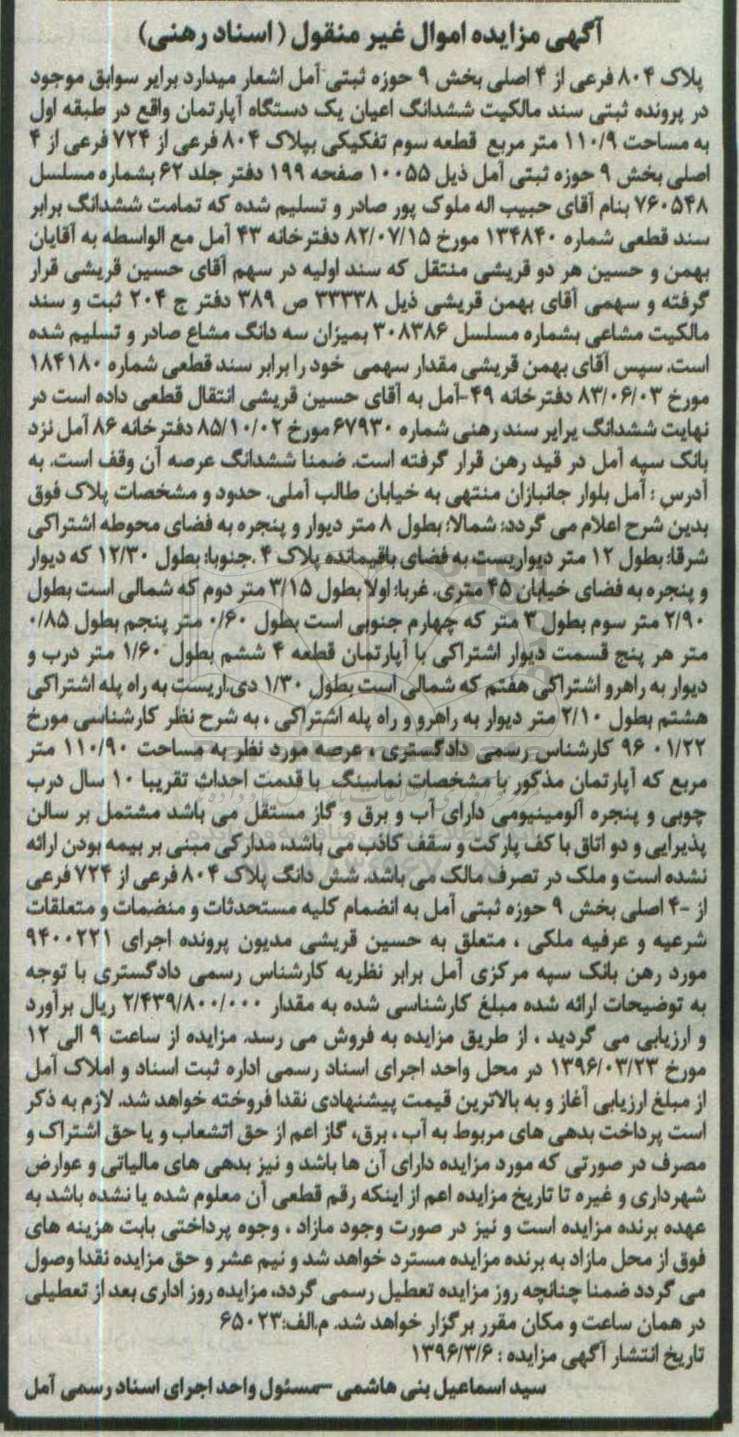 آگهی مزایده اموال غیر منقول (اسناد رهنی)
پلاک ۸۰۴ فرعی از ۴ اصلی بخش ۹ حوزه ثبتی آمل اشعار میدارد برابر سوابق موجود
در پرونده ثبتی سند مالکیت ششدانگ اعیان یک دستگاه آپارتمان واقع در طبقه اول
به مساحت ۱۱۰/۹ متر مربع قطعه سوم تفکیکی بپلاک ۸۰۴ فرعی از ۷۲۴ فرعی از ۴
اصلی بخش ۹ حوزه ثبتی آمل ذیل ۱۰۰۵۵ صفحه ۱۹۹ دفتر جلد ۶۲ بشماره مسلسل
۷۶۰۵۴۸ بنام آقای حبیب اله ملوک پور صادر و تسلیم شده که تمامت ششدانگ برابر
سند قطعی شماره ۱۳۴۸۴۰ مورخ ۸۲/۰۷/۱۵ دفترخانه ۴۳ آمل مع الواسطه به آقایان
بهمن و حسین هر دو قریشی منتقل که سند اولیه در سهم آقای حسین قریشی قرار
گرفته و سهمی آقای بهمن قریشی ذیل ۳۳۳۳۸ ص ۳۸۹ دفتر ج ۲۰۴ ثبت و سند
مالکیت مشاعی بشماره مسلسل ۳۰۸۳۸۶ بمیزان سه دانگ مشاع صادر و تسلیم شده
است. سپس آقای بهمن قریشی مقدار سهمی خود را برابر سند قطعی شماره ۱۸۴۱۸۰
مورخ ۸۳/۰۶/۰۳ دفترخانه ۴۹-آمل به آقای حسین قریشی انتقال قطعی داده است در
نهایت ششدانگ برابر سند رهنی شماره ۶۷۹۳۰ مورخ ۸۵/۱۰/۰۲ دفترخانه ۸۶ آمل نزد
بانک سپه آمل در قید رهن قرار گرفته است. ضمنا ششدانگ عرصه آن وقف است. به
آدرس : آمل بلوار جانبازان منتهی به خیابان طالب آملی. حدود و مشخصات پلاک فوق
بدین شرح اعلام می گردد: شمالا: بطول ۸ متر دیوار و پنجره به فضای محوطه اشتراکی
شرقا: بطول ۱۲ متر دیواریست به فضای باقیمانده پلاک ۴ .جنوبا: بطول ۱۲/۳۰ که دیوار
و پنجره به فضای خیابان ۴۵ متری. غربا: اولا بطول ۳/۱۵ متر دوم که شمالی است بطول
۲/۹۰ متر سوم بطول ۳ متر که چهارم جنوبی است بطول ۰/۶۰ متر پنجم بطول ۰/۸۵
متر هر پنج قسمت دیوار اشتراکی با آپارتمان قطعه ۴ ششم بطول ۱/۶۰ متر درب و
دیوار به راهرو اشتراکی هفتم که شمالی است بطول ۱/۳۰ دی.اریست به راه پله اشتراکی
هشتم بطول ۲/۱۰ متر دیوار به راهرو و راه پله اشتراکی ، به شرح نظر کارشناسی مورخ
۰۱/۲۲ ۹۶ کارشناس رسمی دادگستری ، عرصه مورد نظر به مساحت ۱۱۰/۹۰ متر
مربع که آپارتمان مذکور با مشخصات نماسنگ با قدمت احداث تقریبا ۱۰ سال درب
چوبی و پنجره آلومینیومی دارای آب و برق و گاز مستقل می باشد مشتمل بر سالن
پذیرایی و دو اتاق با کف پارکت و سقف کاذب می باشد، مدارکی مبنی بر بیمه بودن ارائه
نشده است و ملک در تصرف مالک می باشد. شش دانگ پلاک ۸۰۴ فرعی از ۷۲۴ فرعی
از -۴ اصلی بخش ۹ حوزه ثبتی آمل به انضمام کلیه مستحدثات و منضمات و متعلقات
شرعیه و عرفیه ملکی ، متعلق به حسین قریشی مدیون پرونده اجرای ۹۴۰۰۲۲۱
مورد رهن بانک سپه مرکزی آمل برابر نظریه کارشناس رسمی دادگستری با توجه
به توضیحات ارائه شده مبلغ کارشناسی شده به مقدار ۲/۴۳۹/۸۰۰/۰۰۰ ریال برآورد
و ارزیابی می گردید ، از طریق مزایده به فروش می رسد. مزایده از ساعت ۹ الی ۱۲
مورخ ۱۳۹۶/۰۳/۲۳ در محل واحد اجرای اسناد رسمی اداره ثبت اسناد و املاک آمل
از مبلغ ارزیابی آغاز و به بالاترین قیمت پیشنهادی نقدا فروخته خواهد شد. لازم به ذکر
است پرداخت بدهی های مربوط به آب ، برق، گاز اعم از حق انشعاب و یا حق اشتراک و
مصرف در صورتی که مورد مزایده دارای آن ها باشد و نیز بدهی های مالیاتی و عوارض
شهرداری و غیره تا تاریخ مزایده اعم از اینکه رقم قطعی آن معلوم شده یا نشده باشد به
عهده برنده مزایده است و نیز در صورت وجود مازاد ، وجوه پرداختی بابت هزینه های
فوق از محل مازاد به برنده مزایده مسترد خواهد شد و نیم عشر و حق مزایده نقدا وصول
می گردد ضمنا چنانچه روز مزایده تعطیل رسمی گردد، مزایده روز اداری بعد از تعطیلی
در همان ساعت و مکان مقرر برگزار خواهد شد. م.الف:۶۵۰۲۳
تاریخ انتشار آگهی مزایده : ۱۳۹۶/۳/۶
سید اسماعیل بنی هاشمی –مسئول واحد اجرای اسناد رسمی آمل